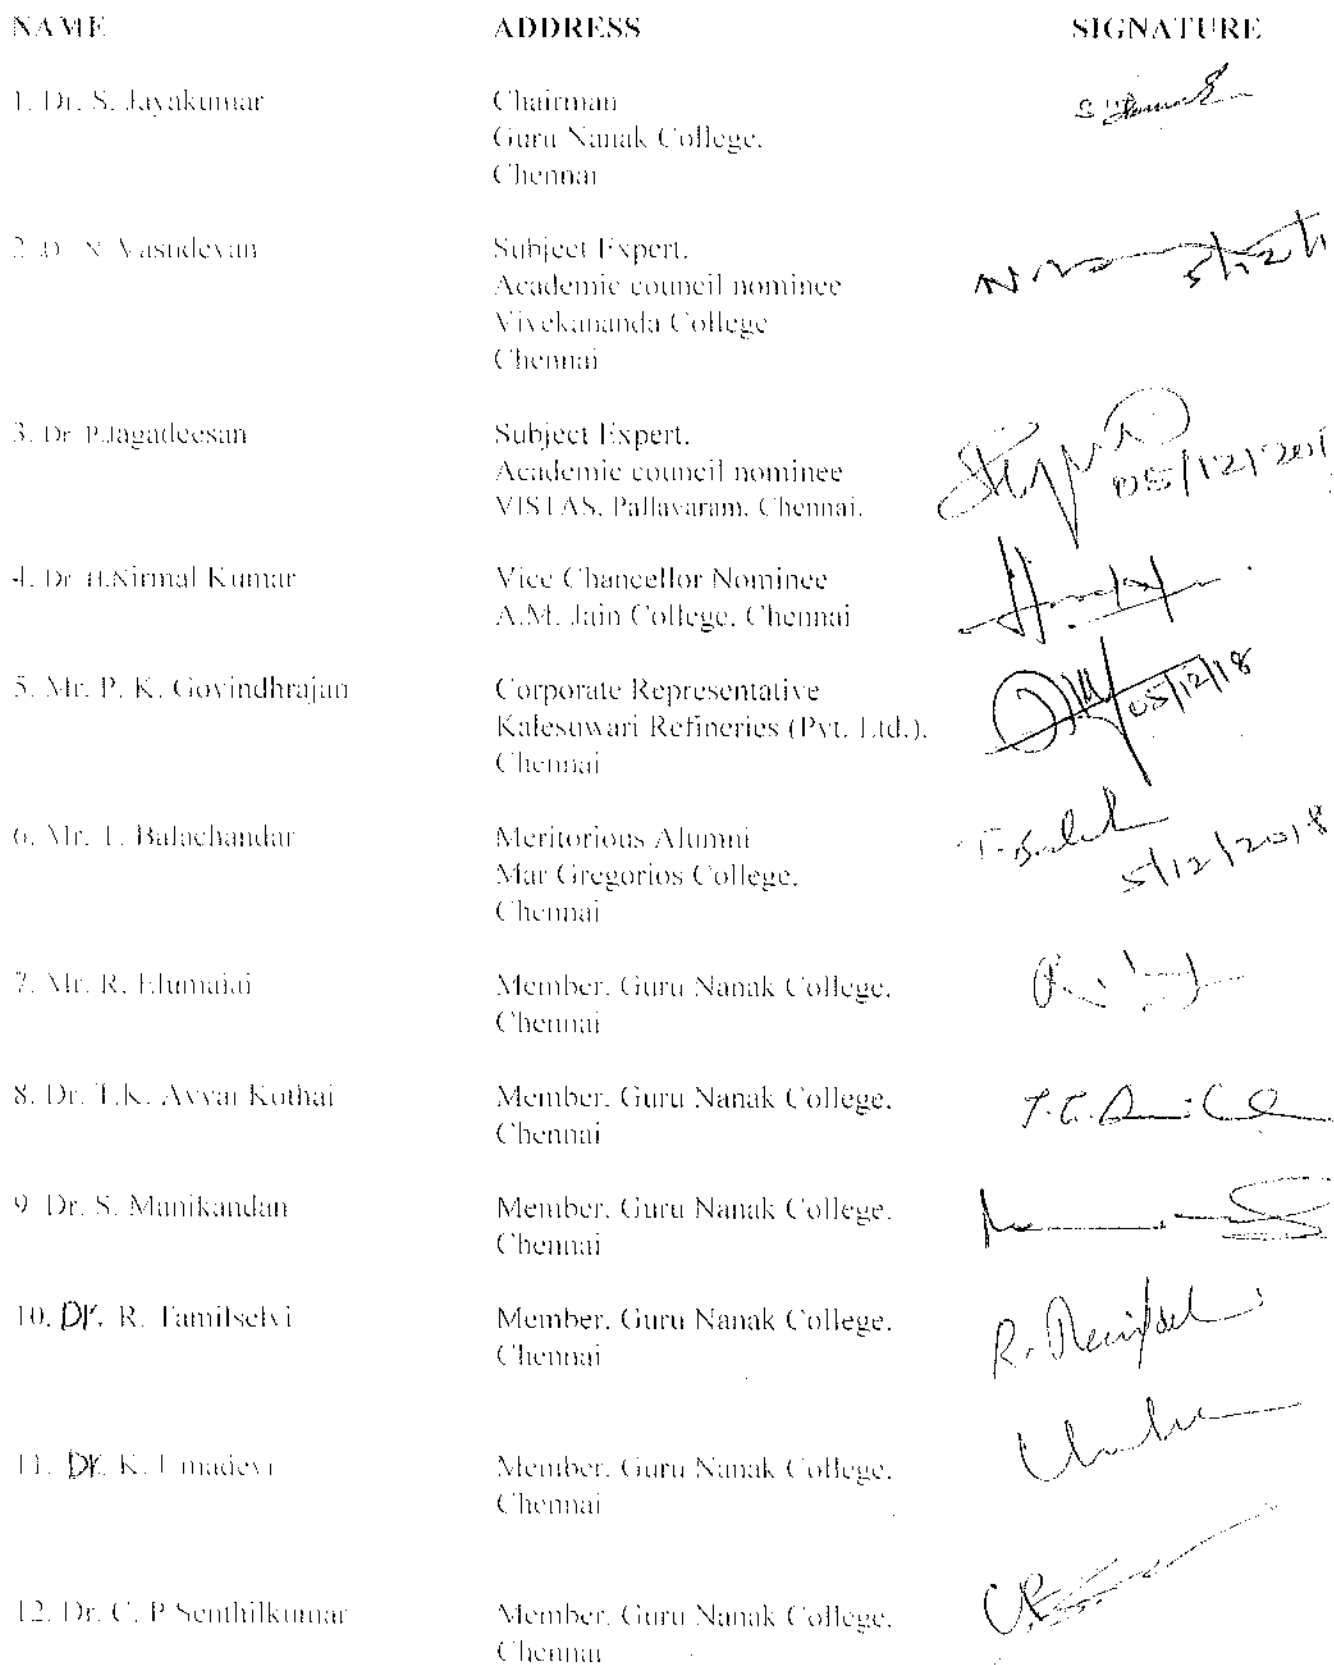 NAME ADDRESS SIGNATURE
1. Dr. S. Jayakumar Chairman
Guru Nanak College,
Chennai
2. Dr. N. Vasudevan Subject Expert,
Academic council nominee 5/12/1
Vivekananda College
Chennai
3. Dr. P.Jagadeesan Subject Expert,
Academic council nominee 05/12/201
VISTAS, Pallavaram, Chennai.
4. Dr. H.Nirmal Kumar Vice Chancellor Nominee
A.M. Jain College, Chennai
5. Mr. P. K. Govindhrajan Corporate Representative 05/12/18
Kalesuwari Refineries (Pvt. Ltd.),
Chennai
6. Mr. T. Balachandar Meritorious Alumni
Mar Gregorios College, 5/12/2018
Chennai
7. Mr. R. Elumalai Member, Guru Nanak College,
Chennai
8. Dr. T.K. Avvai Kothai Member, Guru Nanak College,
Chennai
9. Dr. S. Manikandan Member, Guru Nanak College,
Chennai
10. Dr. R. Tamilselvi Member, Guru Nanak College,
Chennai
11. Dr. K. Umadevi Member, Guru Nanak College,
Chennai
12. Dr. C. P Senthilkumar Member, Guru Nanak College,
Chennai